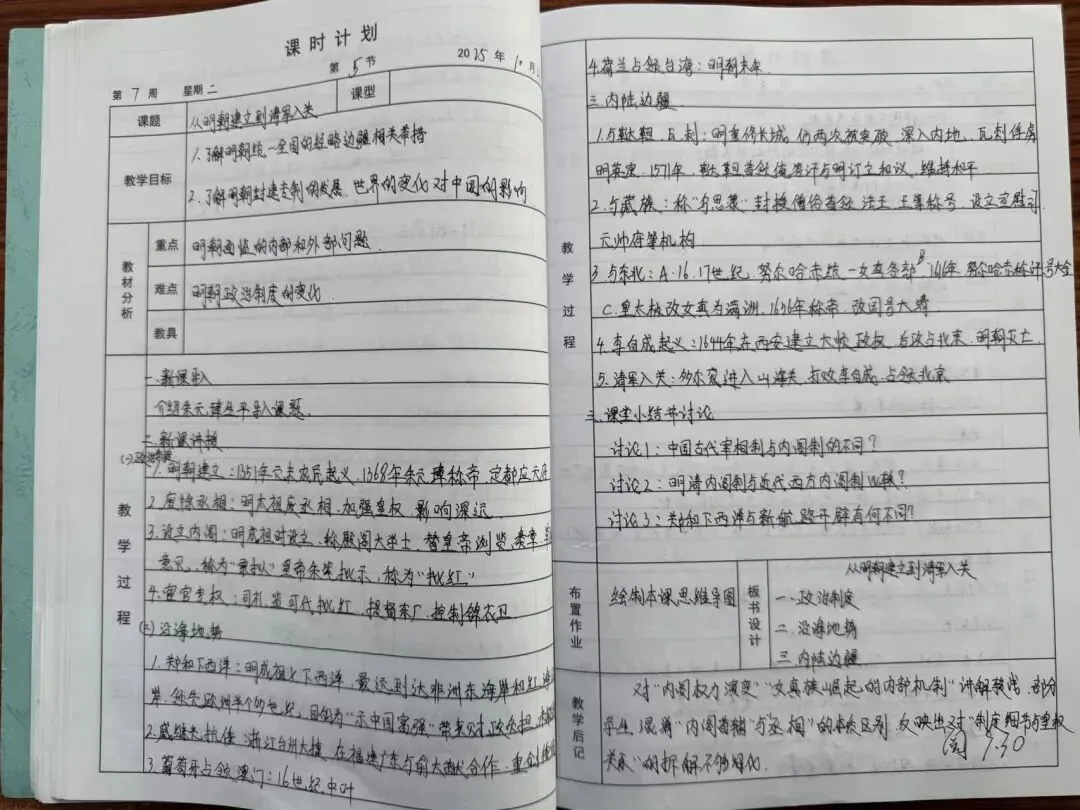 课时计划
第 5 节 2025 年 1 月
第 7 周 星期 二
课题 从明朝建立到清军入关 课型
教学目标
1.了解明朝统一全国的经略边疆相关举措
2.了解明朝封建专制的发展、世界的变化对中国的影响
教材分析
重点 明朝面临的内部和外部问题
难点 明朝政治制度的变化
教具
教学过程
一.新课导入
介绍朱元璋生平导入课题.
二.新课讲授
(一)政治制度
1.明朝建立:1351年元末农民起义,1368年朱元璋称帝,定都应天府
2.废除丞相:明太祖废丞相,加强皇权,影响深远
3.设立内阁:明成祖时设立,称殿阁大学士,替皇帝浏览奏章
意见,称为“票拟”皇帝朱笔批示,称为“批红”
4.宦官专权:司礼监可代批红,提督东厂,控制锦衣卫
(二)沿海地势
1.郑和下西洋:明成祖七下西洋,最远到达非洲东海岸和红海
岸,领先欧洲半个多世纪,目的为“示中国富强”带来财政负担
2.戚继光抗倭:浙江台州大捷,在福建广东与俞大猷合作
3.葡萄牙占领澳门:16世纪中叶
4.荷兰占领台湾:明朝末年
三.内陆边疆
1.与鞑靼、瓦剌:明重修长城,仍两次被突破,深入内地,瓦剌俘虏
明英宗,1571年,鞑靼首领俺答汗与明订立和议,维持和平
2.与藏族:称“乌思藏”封授僧俗首领法王、王等称号,设立宣慰司、
元帅府等机构
教学过程
3.与东北:A.16.17世纪,努尔哈赤统一女真各部 B.1616年努尔哈赤称汗号大金
C.皇太极改女真为满洲,1636年称帝,改国号大清
4.李自成起义:1644年在西安建立大顺政权,后攻占北京,明朝灭亡.
5.清军入关:多尔衮进入山海关,打败李自成,占领北京
三.课堂小结节讨论
讨论1:中国古代宰相制与内阁制的不同?
讨论2:明清内阁制与近代西方内阁制比较?
讨论3:郑和下西洋与新航路开辟有何不同?
布置作业 绘制本课思维导图
板书设计
从明朝建立到清军入关
一.政治制度
二.沿海地势
三.内陆边疆
教学后记
对“内阁权力演变”“女真族崛起的内部机制”讲解较浅,部分
学生混淆“内阁首辅”与“丞相”的本质区别,反映出对“制度细节与皇权
关系”的拆解不够细化.
阅 9.30